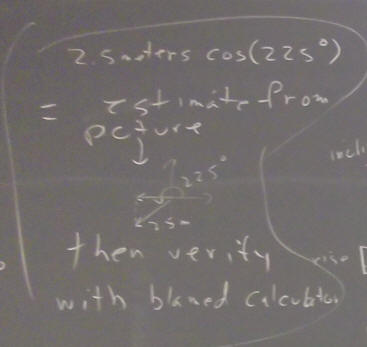 2.5 meters cos(225°)
= estimate from
pcture
225°
2.5m
then verify
with blaned calculator